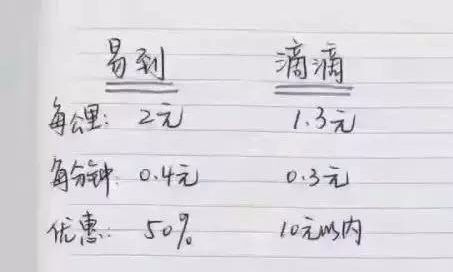 易到 滴滴
每公里: 2元 1.3元
每分钟: 0.4元 0.3元
优惠: 50% 10元以内